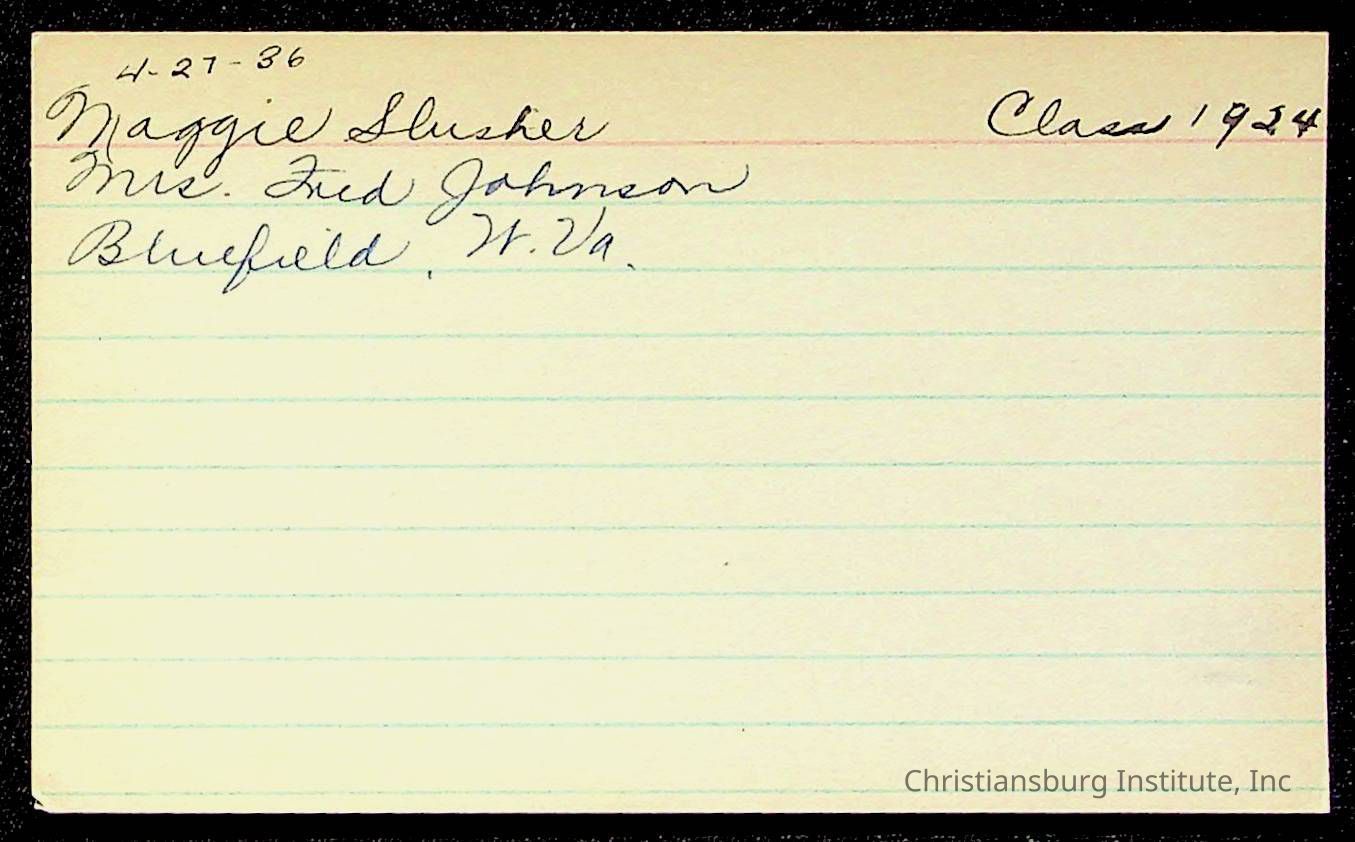 4-27-36
Maggie Slusher Class 1924
Mrs. Fred Johnson
Bluefield, W. Va.
Christiansburg Institute, Inc